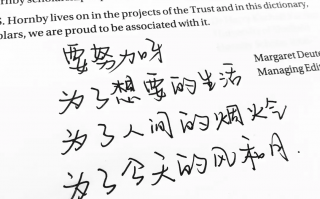 S. Hornby lives on in the projects of the Trust and in this dictionary,
we are proud to be associated with it.
要努力呀
Margaret Deute
Managing Edi
为了想要的生活
为了人间的烟火气
为了今天的风和月.